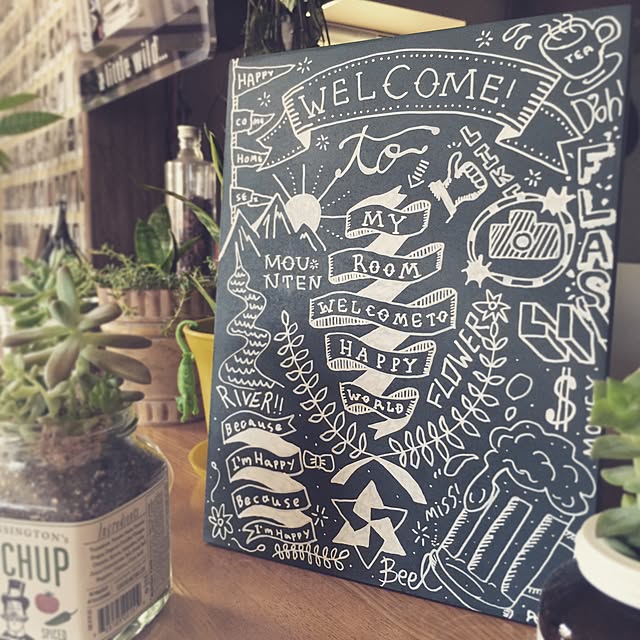 a little wild...
HAPPY
COME
HOME
WELCOME!
to
TEA
Doh
FLASH
MY
ROOM
WELCOMETO
HAPPY
WORLD
MOU
NTEN
RIVER!!
FLOWER
$
Because
I'm Happy
Because
I'm Happy
MISS!
Beel
SSINGTON'S
CHUP
Ingredients
SPICED